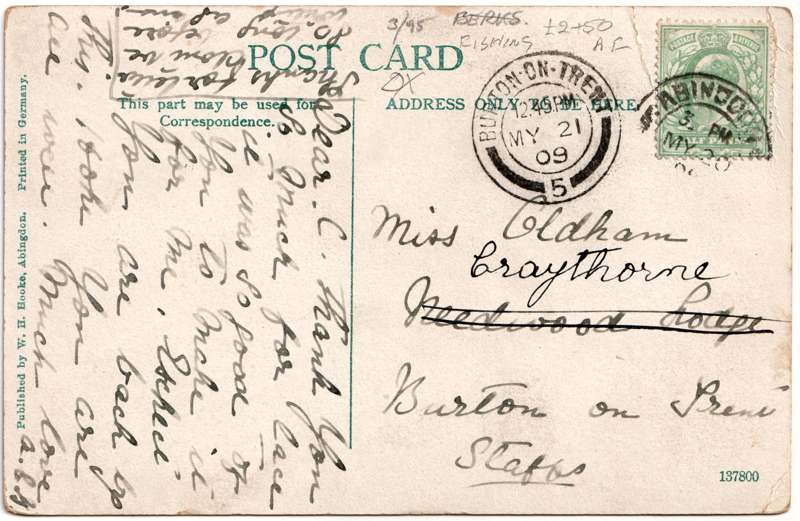 3/95
BERKS.
FISHING £2+50
A F
POST CARD
This part may be used for
Correspondence.
ADDRESS ONLY TO BE HERE
BURTON-ON-TRENT
12.45 PM
MY 21
09
5
ABINGDON
3. PM
MY 20
Miss Oldham
Craythorne
Needwood Lodge
Burton on Trent
Staffs
137800
Dear. C. Thank you
so much for lace
it was so good of
you to make it
for me. Expect
you are back by
this. Hope you are
all well. Much love
A.E.
thanks for
before
so long
Published by W. H. Hooke, Abingdon. Printed in Germany.